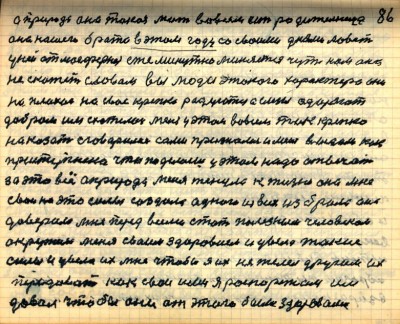 а природа она такая мать во всем ест родительница 86
она нашего брата в этом году со своими днями ловит
у ней атмосфера ежеминутно меняется чуть нам она
не скажит словам вы люди этакого характера она
на плохое на свое крепко радуется силы одаряет
добром им скотилом меня у этом вовсем так крепко
наказат сговорилися сами признали а меня выдали как
приступника что поделаеш у этом надо отвечат
за это всё а природа меня тянула к жизни она мне
свои на это силы создала одного из всех избрала она
доверила мне перед всеми стат полезным человеком
окружила меня своим здоровием и увела такие
силы и увела их мне чтобы я их не жилел другим их
передават как свои ими я распоряжаюсь им
давал чтобы они от этого были здоровами